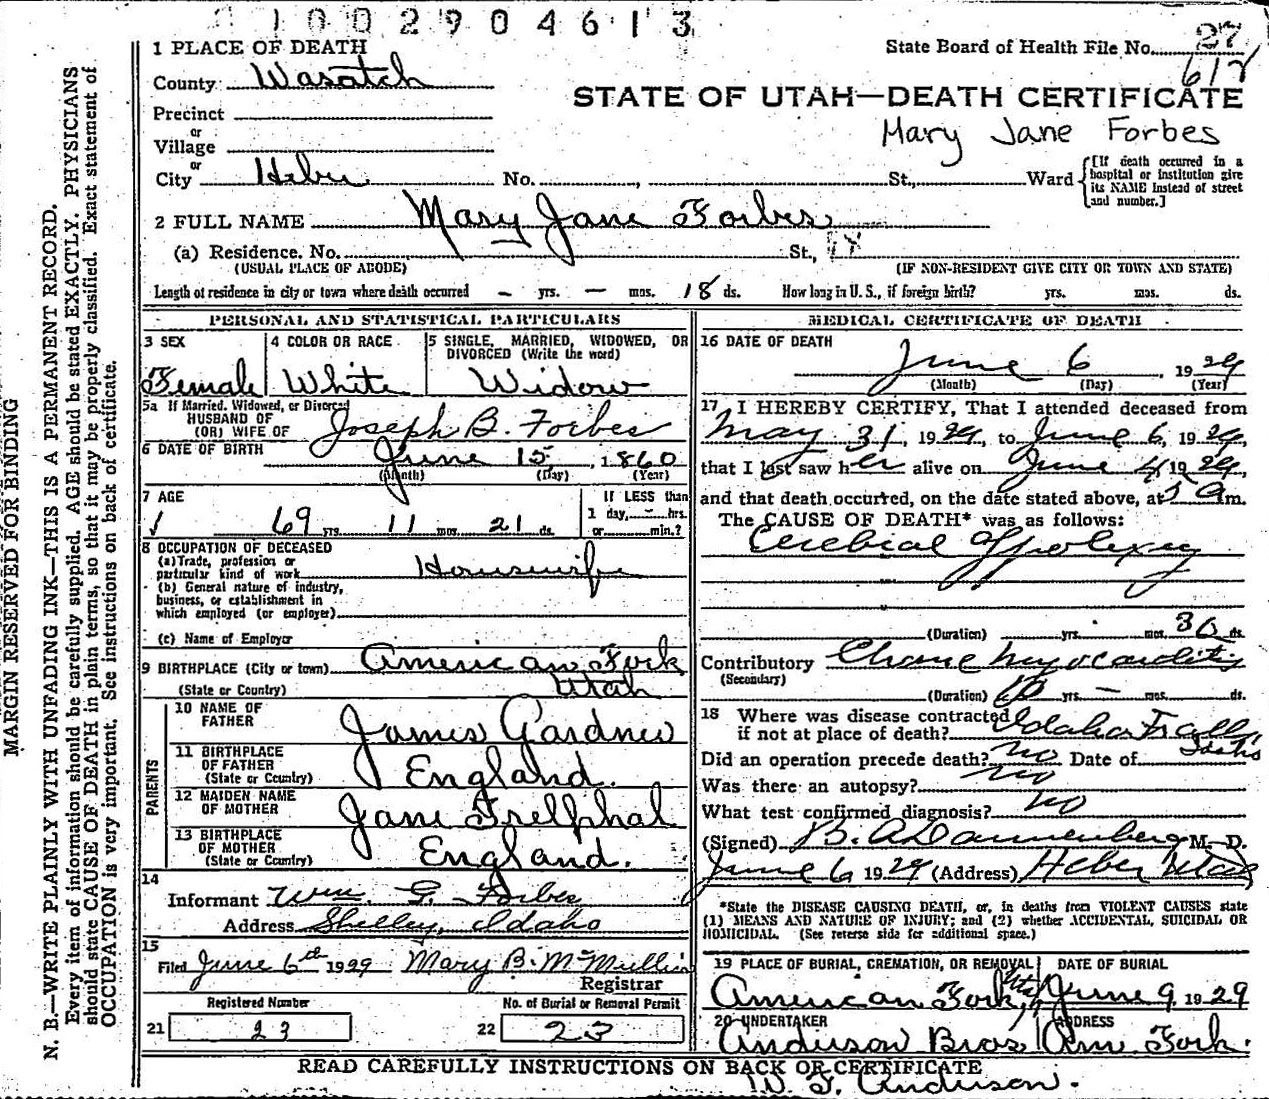 1002904613
1 PLACE OF DEATH
State Board of Health File No. 27
612
County Wasatch
STATE OF UTAH—DEATH CERTIFICATE
Precinct
Mary Jane Forbes
or
Village
or
City Heber No. , St., Ward {[If death occurred in a hospital or institution give its NAME instead of street and number.]
2 FULL NAME Mary Jane Forbes
(a) Residence. No. St.,
(USUAL PLACE OF ABODE) (IF NON-RESIDENT GIVE CITY OR TOWN AND STATE)
Length of residence in city or town where death occurred – yrs. – mos. 18 ds. How long in U. S., if foreign birth? yrs. mos. ds.
PERSONAL AND STATISTICAL PARTICULARS
3 SEX
Female
4 COLOR OR RACE
White
5 SINGLE, MARRIED, WIDOWED, OR
DIVORCED (Write the word)
Widow
5a If Married, Widowed, or Divorced
HUSBAND OF
(OR) WIFE OF Joseph B. Forbes
6 DATE OF BIRTH June 15, 1860
(Month) (Day) (Year)
7 AGE
69 yrs. 11 mos. 21 ds.
If LESS than
1 day, – hrs.
or min.?
8 OCCUPATION OF DECEASED
(a) Trade, profession or
particular kind of work Housewife
(b) General nature of industry,
business, or establishment in
which employed (or employer)
(c) Name of Employer
9 BIRTHPLACE (City or town) American Fork
(State or Country) Utah
PARENTS
10 NAME OF
FATHER James Gardner
11 BIRTHPLACE
OF FATHER
(State or Country) England.
12 MAIDEN NAME
OF MOTHER Jane Trelphal
13 BIRTHPLACE
OF MOTHER
(State or Country) England.
14
Informant Wm. G. Forbes
Address Shelley, Idaho
15
Filed June 6th 1929 Mary B. McMullin
Registrar
Registered Number
21 23
No. of Burial or Removal Permit
22 23
MEDICAL CERTIFICATE OF DEATH
16 DATE OF DEATH
June 6, 1929
(Month) (Day) (Year)
17 I HEREBY CERTIFY, That I attended deceased from
May 31, 1929, to June 6, 1929,
that I last saw her alive on June 4, 1929,
and that death occurred, on the date stated above, at 5 a m.
The CAUSE OF DEATH* was as follows:
Cerebral Appolexy
(Duration) yrs. mos. ds.
Contributory Chronc Myocarditis
(Secondary)
(Duration) 10 yrs. – mos. ds.
18 Where was disease contracted
if not at place of death? Idaho Falls Idaho
Did an operation precede death? no Date of
Was there an autopsy? no
What test confirmed diagnosis? no
(Signed) B. A. Dannenberg M. D.
June 6 1929 (Address) Heber Utah
*State the DISEASE CAUSING DEATH, or, in deaths from VIOLENT CAUSES state
(1) MEANS AND NATURE OF INJURY; and (2) whether ACCIDENTAL, SUICIDAL OR
HOMICIDAL. (See reverse side for additional space.)
19 PLACE OF BURIAL, CREMATION, OR REMOVAL
American Fork, Utah
DATE OF BURIAL
June 9, 1929
20 UNDERTAKER
Anderson Bros
ADDRESS
Am. Fork.
READ CAREFULLY INSTRUCTIONS ON BACK OF CERTIFICATE
W. F. Anderson.
MARGIN RESERVED FOR BINDING
N. B.—WRITE PLAINLY WITH UNFADING INK—THIS IS A PERMANENT RECORD.
Every item of information should be carefully supplied. AGE should be stated EXACTLY. PHYSICIANS
should state CAUSE OF DEATH in plain terms, so that it may be properly classified. Exact statement of
OCCUPATION is very important. See instructions on back of certificate.